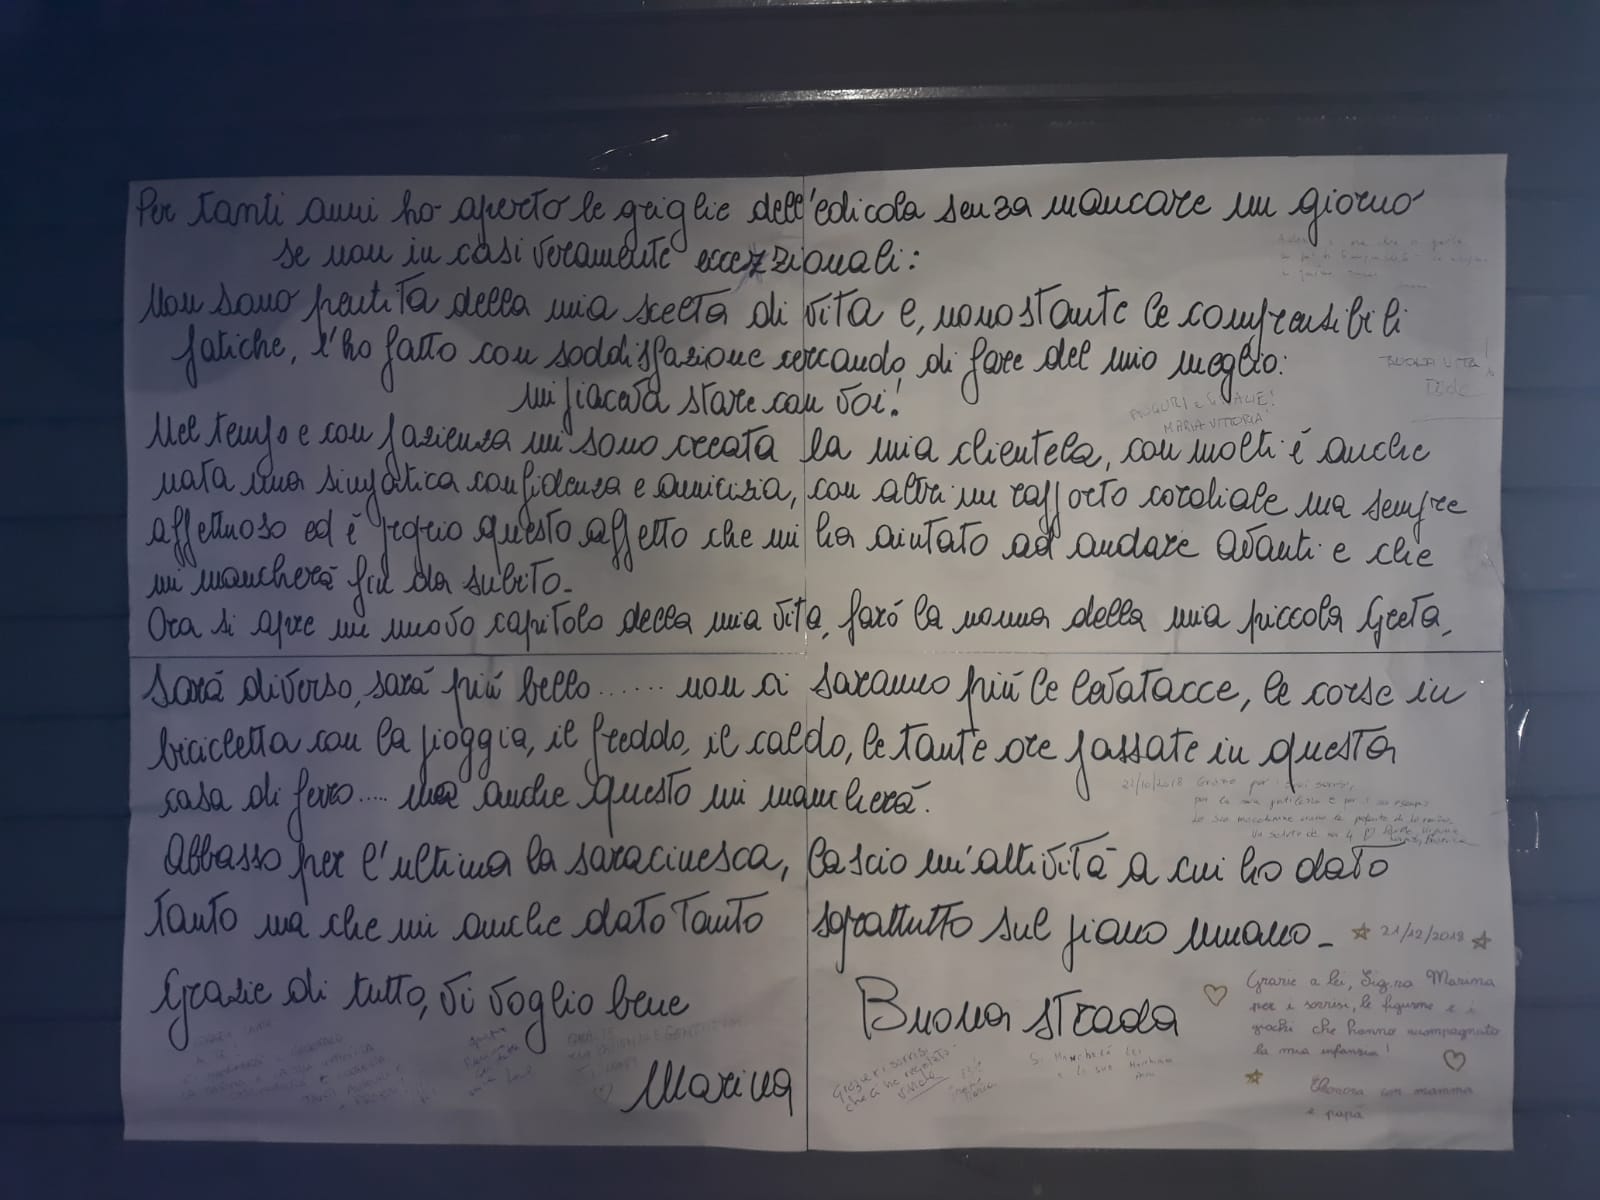 Per tanti anni ho aperto le griglie dell'edicola senza mancare un giorno
se non in casi veramente eccezzionali:
Non sono pentita della mia scelta di vita e, nonostante le comprensibili
fatiche, l'ho fatto con soddisfazione cercando di fare del mio meglio:
mi piaceva stare con voi!
AUGURI e GRAZIE!
MARIA VITTORIA!
Nel tempo e con pazienza mi sono creata la mia clientela, con molti è anche
nata una simpatica confidenza e amicizia, con altri un rapporto cordiale ma sempre
affettuoso ed è proprio questo affetto che mi ha aiutato ad andare avanti e che
mi mancherà fin da subito.
Ora si apre un nuovo capitolo della mia vita, farò la nonna della mia piccola Greta,
sarà diverso, sarà più bello ...... non ci saranno più le levatacce, le corse in
bicicletta con la pioggia, il freddo, il caldo, le tante ore passate in questa
casa di ferro..... ma anche questo mi mancherà.
Abbasso per l'ultima la saracinesca, lascio un'attività a cui ho dato
tanto ma che mi anche dato tanto soprattutto sul piano umano -
21/12/2018
Grazie di tutto, vi voglio bene
Buona strada
Marina
Grazie a lei, Sig.ra Marina
per i sorrisi, le figurine e i
giochi che hanno accompagnato
la mia infanzia!
Eleonora con mamma
e papà
Grazie x i sorrisi
che ci ha regalato